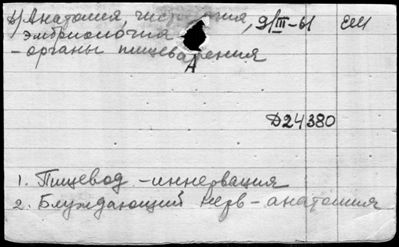 4) Анатомия, гистология, 9/III-61 ЕМ
эмбриология
- органы пищеварения
А
Д24380
1. Пищевод - иннервация
2. Блуждающий нерв - анатомия